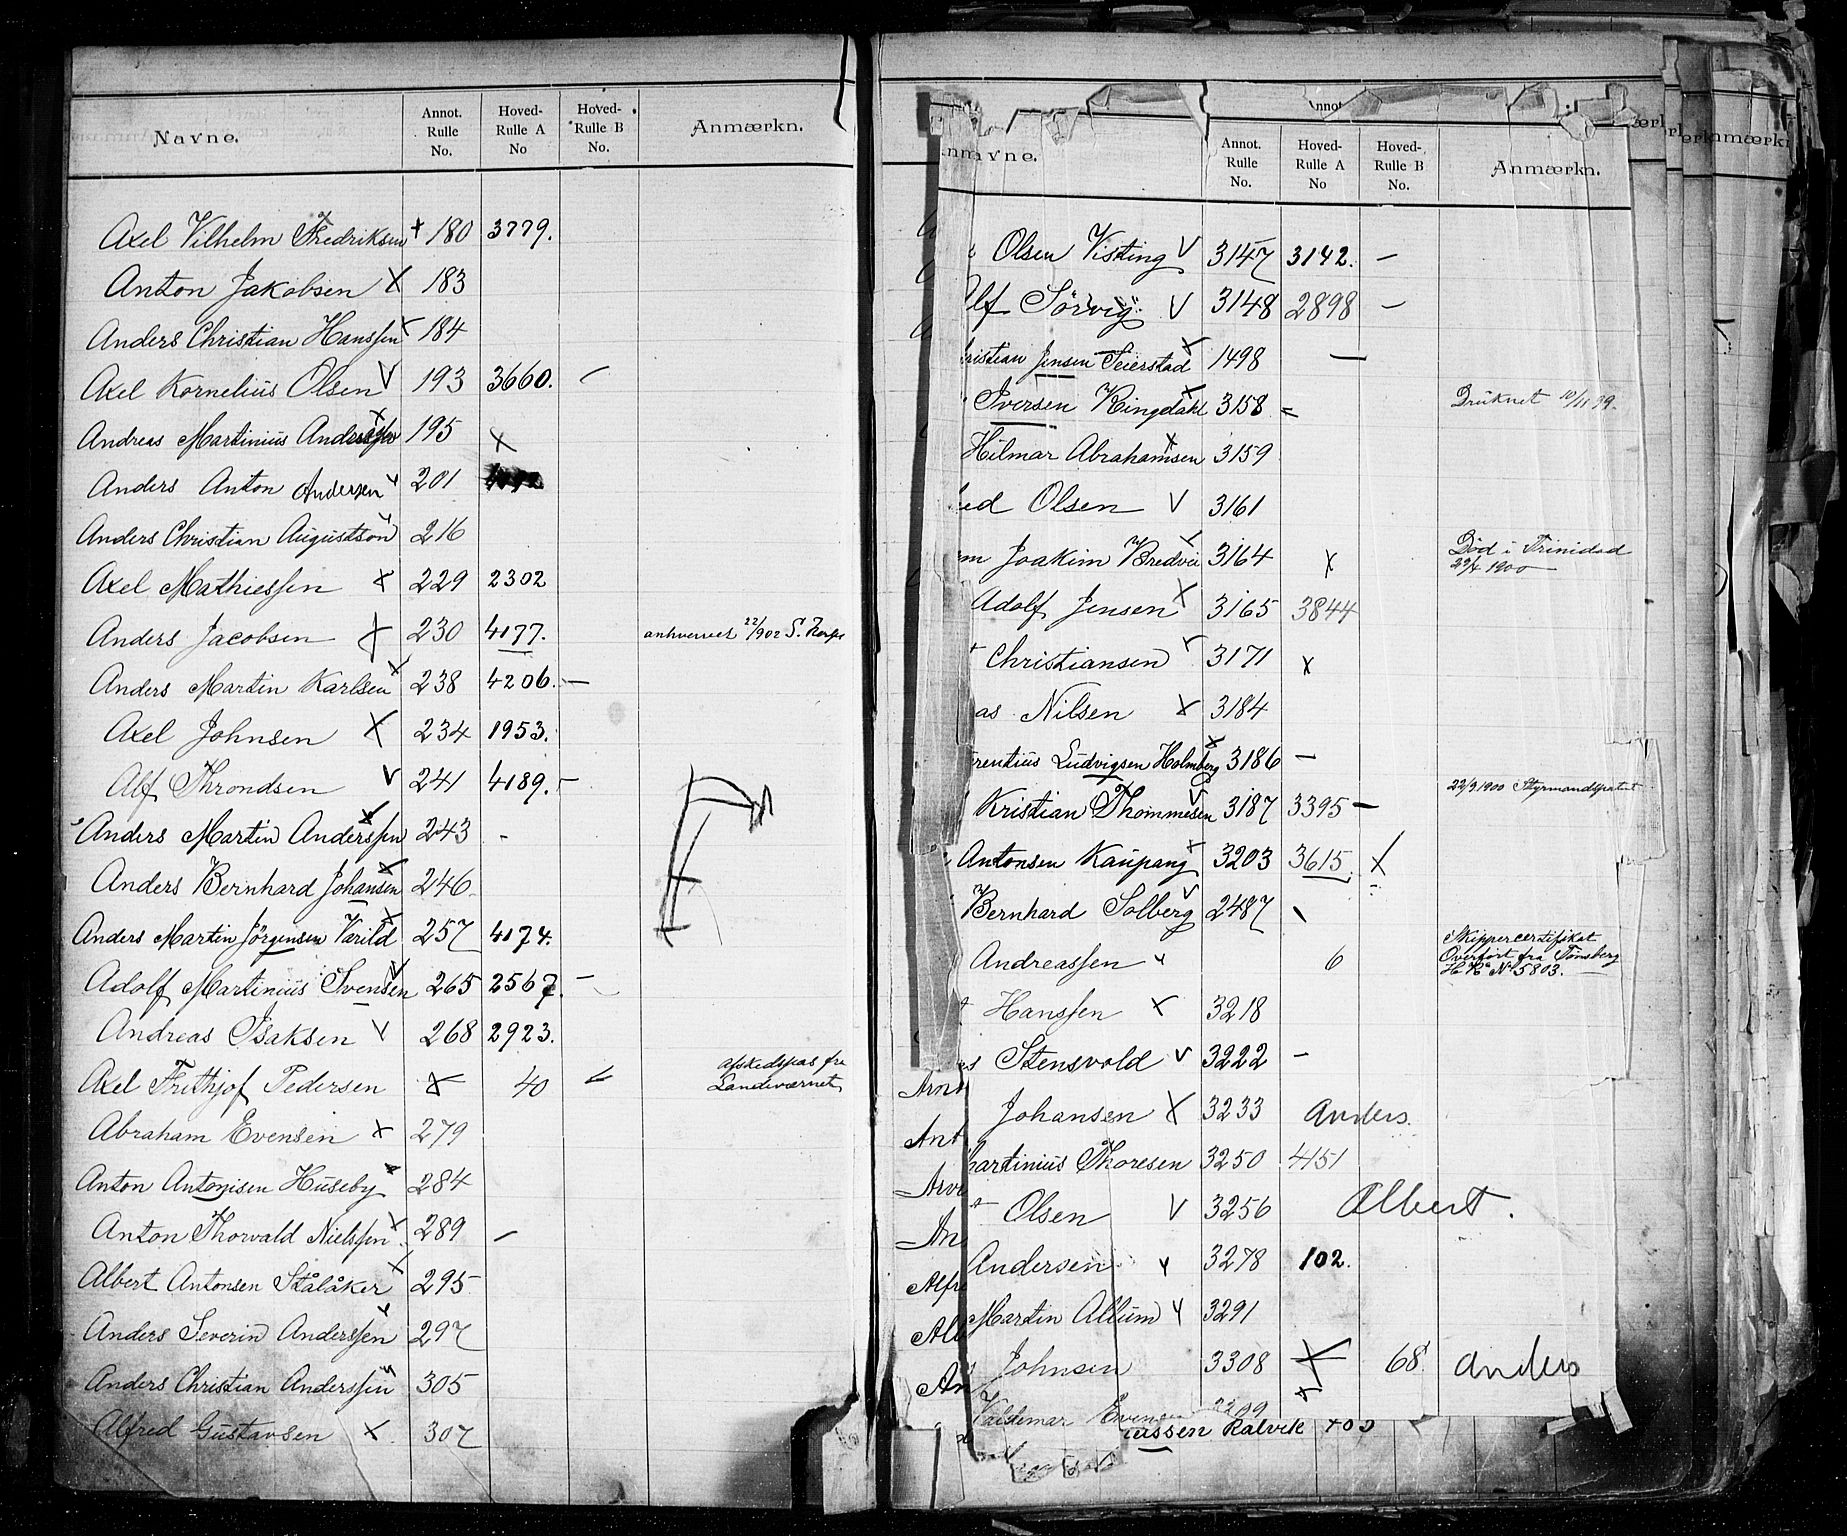 Navne. Annot. Rulle No. Hoved-Rulle A No Hoved-Rulle B No. Anmærkn.
Axel Vilhelm Fredriksen + 180 3779.
Anton Jakobsen X 183
Anders Christian Hanssen X 184
Axel Kornelius Olsen V 193 3660. -
Andreas Martinius Anderssen X 195 X
Anders Anton Andersen 201
Anders Christian Augustson 216
Axel Mathiessen X 229 2302
Anders Jacobsen X 230 4177. anhvervet 22/902
Anders Martin Karlsen X 238 4206. -
Axel Johnsen X 234 1953.
Alf Throndsen V 241 4189. -
Anders Martin Anderssen X 243 -
Anders Bernhard Johansen X 246
Anders Martin Jörgensen Varild X 257 4174.
Adolf Martinius Svensen V 265 2567. -
Andreas Isaksen V 268 2923.
Axel Frithjof Pedersen X 40 Afskedspas fra Landeværnet
Abraham Evensen X 279
Anton Antonisen Huseby X 284
Anton Thorvald Nielssen X 289 -
Albert Antonsen Stålåker X 295
Anders Severin Anderssen 297
Anders Christian Anderssen 305
Alfred Gustavsen X 307
avne. Annot. Rulle No. Hoved-Rulle A No Hoved-Rulle B No. Anmærkn.
Olsen Visting V 3147 3142. -
lf Sörvig V 3148 2898 -
ristian Jensen Seierstad X 1498 -
Iversen Ringdahl X 3158 = Druknet 10/11 99.
Hilmar Abrahamsen X 3159
ed Olsen V 3161
m Joakim Bredvei 3164 X Död i Trinidad 29/4 1900
Adolf Jensen X 3165 3844
Christiansen 3171 X
as Nilsen X 3184
rentius Ludvigsen Holmberg X 3186 -
Kristian Thommesen V 3187 3395 - 22/9 1900 Styrmandspatent
Antonsen Kaupang X 3203 3615. X
Bernhard Solberg V 2487
Andreassen 6 Skippercertifikat Overfört fra Tönsberg No 5803.
Hanssen X 3218
Stensvold V 3222 -
Arnt
Johansen X 3233 Anders.
Ant
artinius Thoresen 3250 4151
Arvi
Olsen V 3256 Albert.
An
Andersen 3278 102.
Alfre
Martin Allum 3291
Alb
Johnsen 3308 X 68 Anders
An
Valdemar Evensen
ussen Kalvik 403